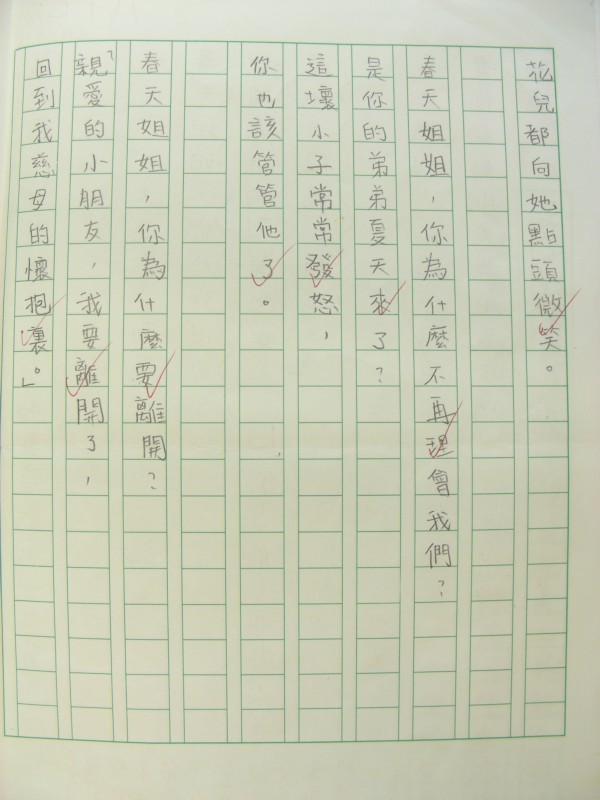 花兒都向她點頭微笑。
春天姐姐,你為什麼不再理會我們?
是你的弟弟夏天來了?
這壞小子常常發怒,
你也該管管他了。
春天姐姐,你為什麼要離開?
「親愛的小朋友,我要離開了,
回到我慈母的懷抱裏。」